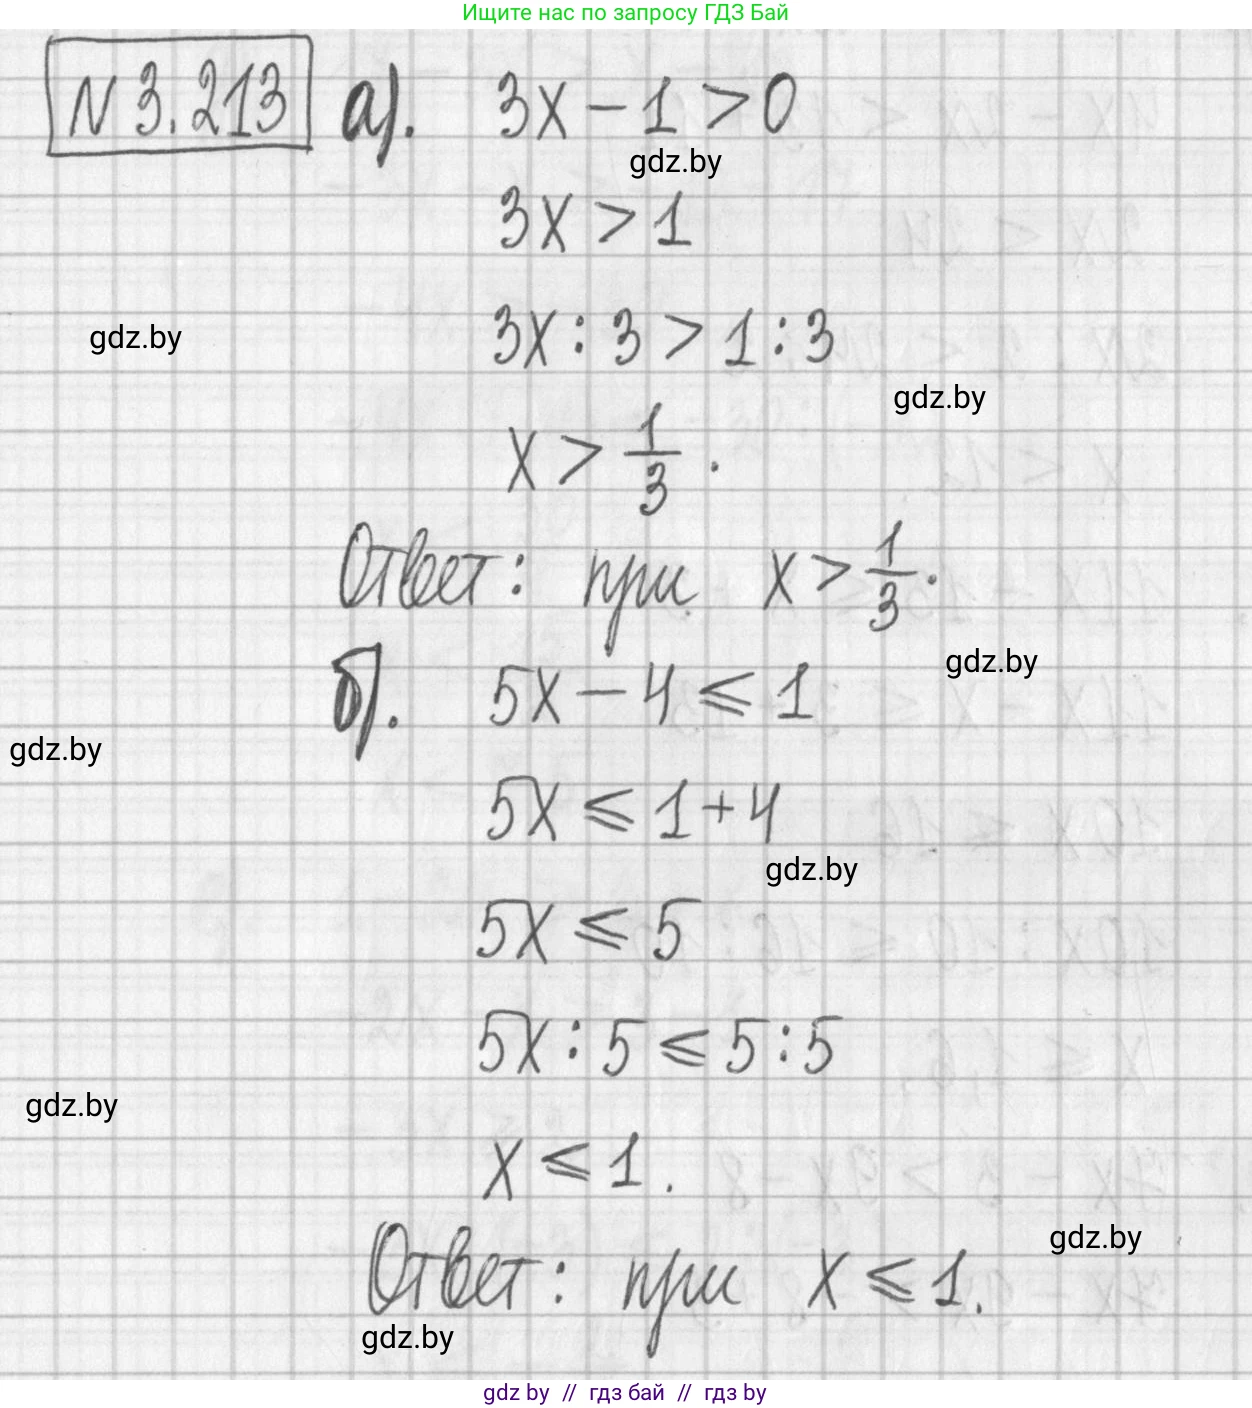 Ищите нас по запросу ГДЗ Бай
N 3.213 а). 3x - 1 > 0
gdz.by
3x > 1
gdz.by
3x : 3 > 1 : 3
gdz.by
x > 1/3.
Ответ: при x > 1/3.
gdz.by
б). 5x - 4 ⩽ 1
gdz.by
5x ⩽ 1 + 4
gdz.by
5x ⩽ 5
5x : 5 ⩽ 5 : 5
gdz.by
x ⩽ 1.
gdz.by
Ответ: при x ⩽ 1.
gdz.by
gdz by // гдз бай // гдз by